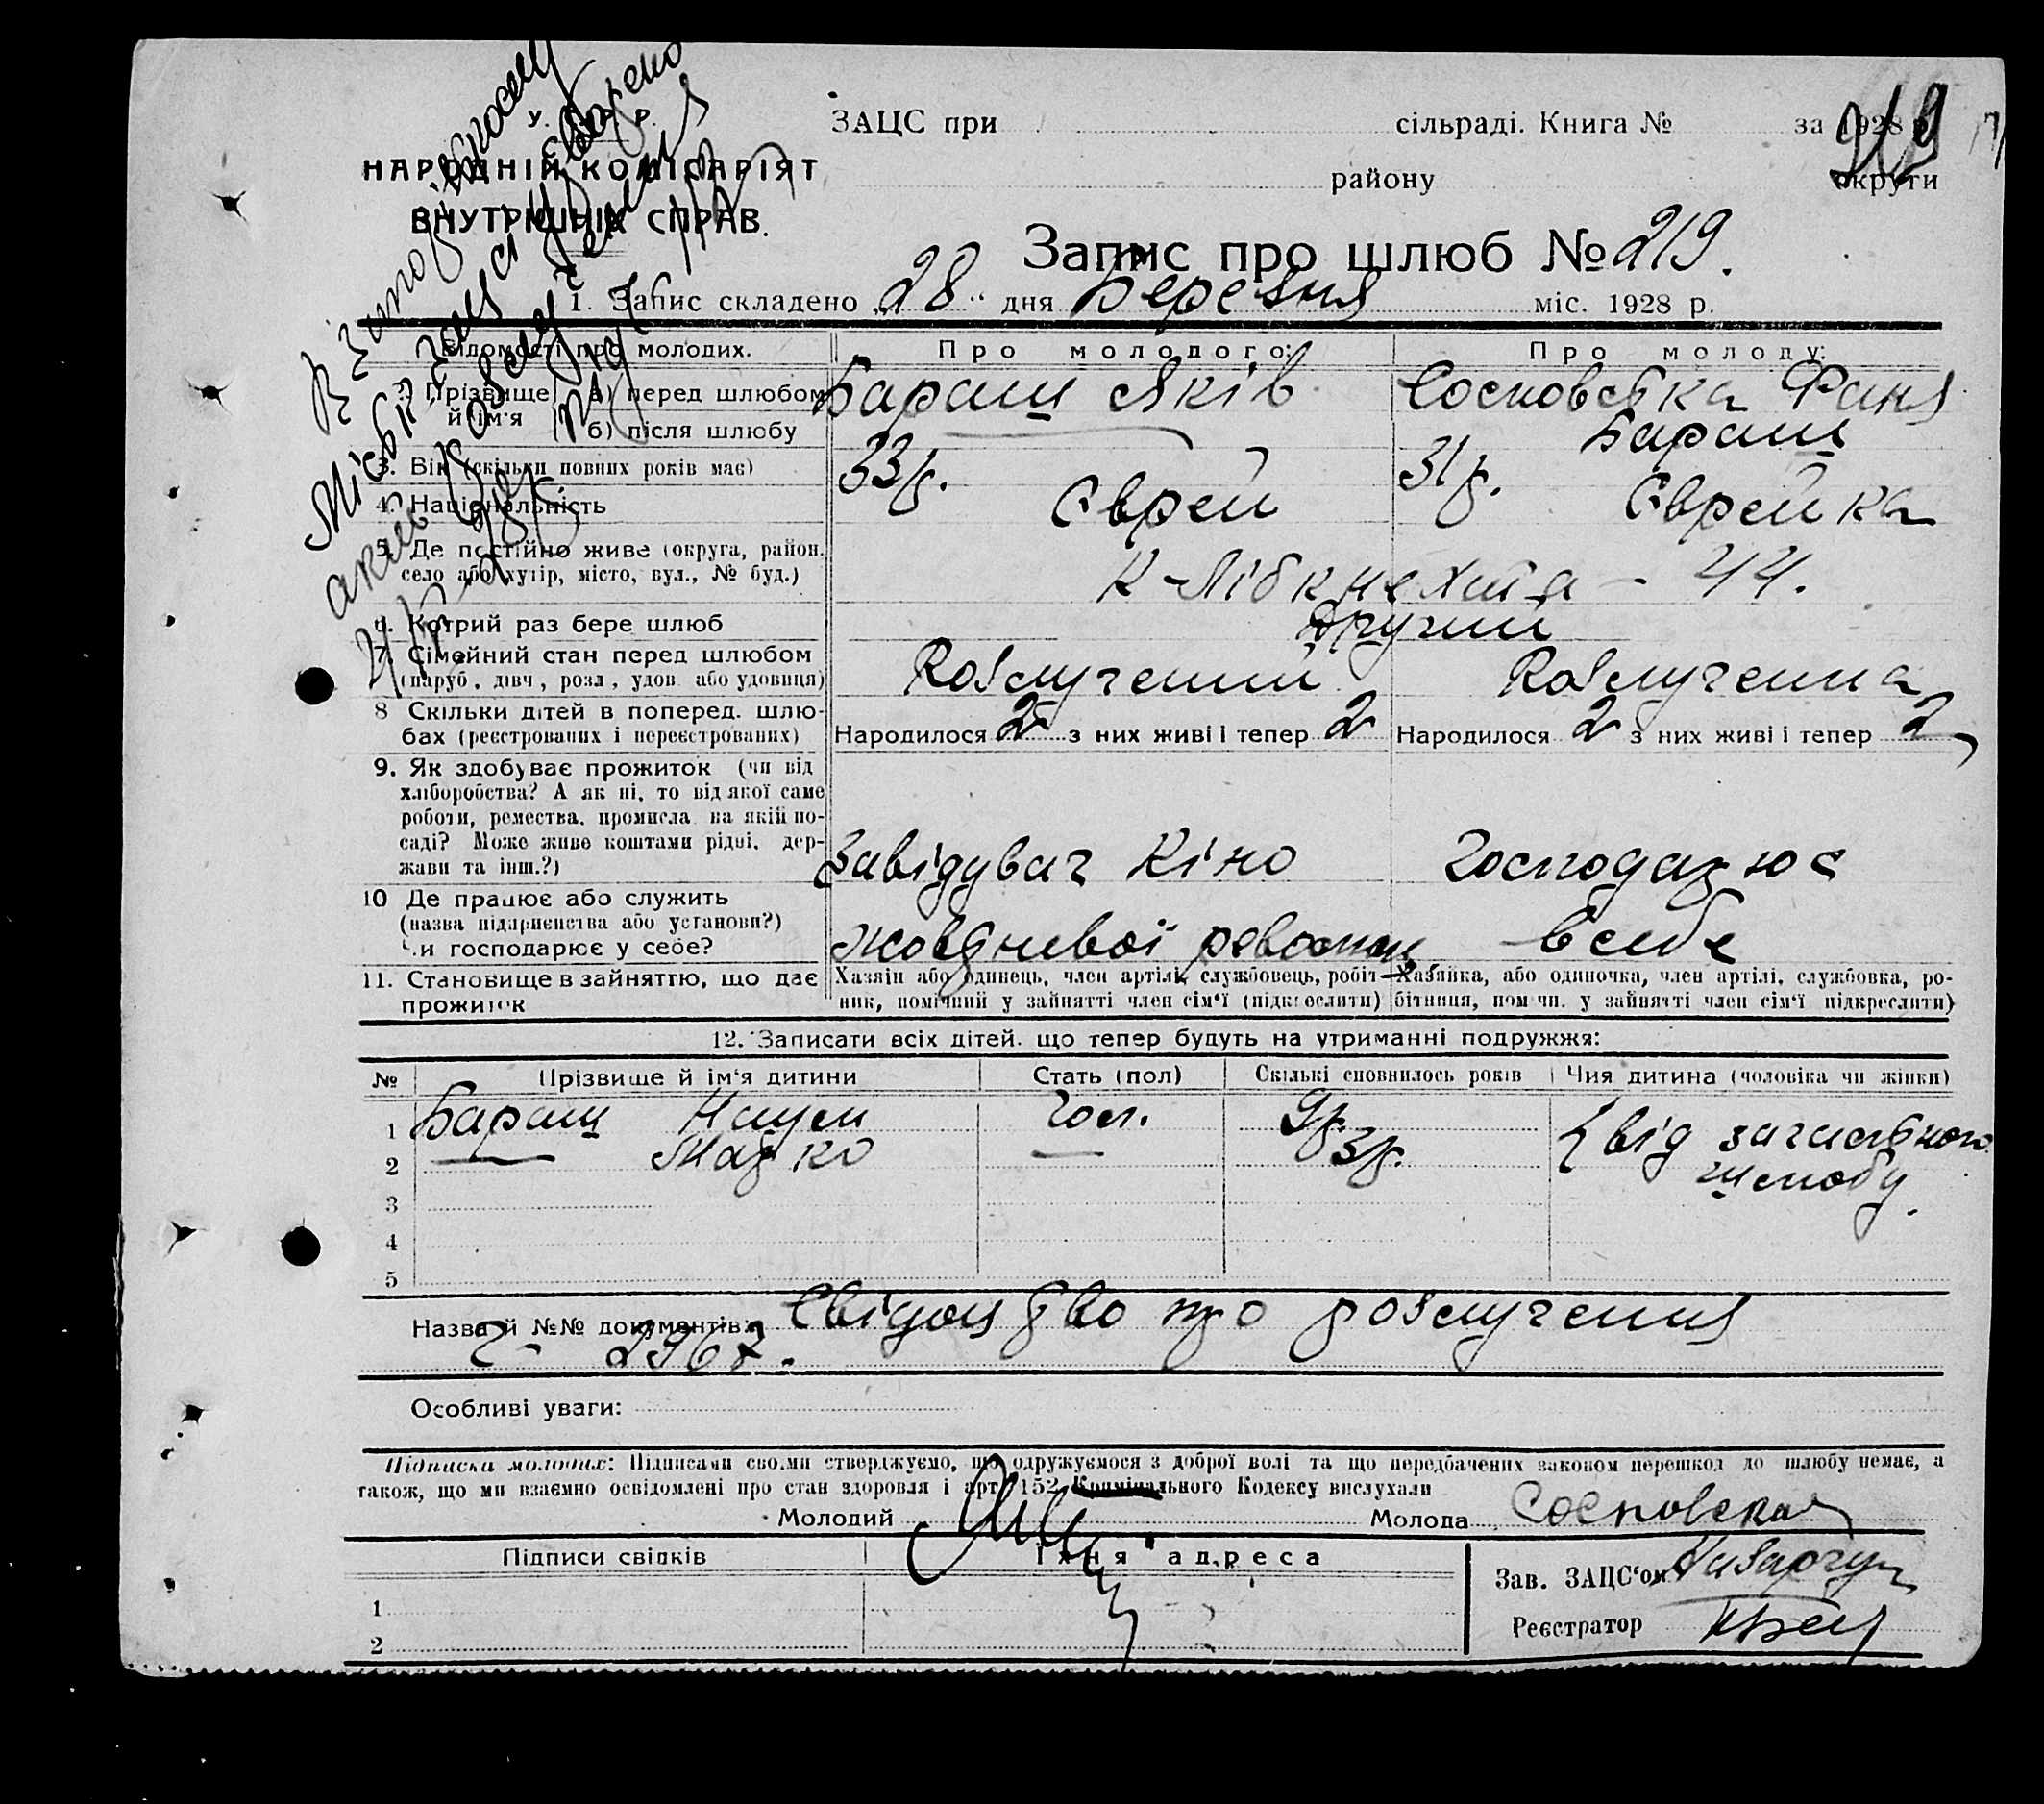 У. С. Р. Р.
НАРОДНІЙ КОМІСАРІЯТ
ВНУТРІШНІХ СПРАВ.
ЗАЦС при сільраді. Книга № за 1928 р.
району округи
219
Запис про шлюб № 219.
1. Запис складено „28" дня Березня міс. 1928 р.
Відомості про молодих. Про молодого: Про молоду:
2. Прізвище й ім'я а) перед шлюбом Бараш Яків Сосновська Фаня
б) після шлюбу Бараш
3. Вік (скільки повних років має) 33 р. 31 р.
4. Національність Єврей Єврейка
5. Де постійно живе (округа, район, село або хутір, місто, вул., № буд.) К-Лібкнехта - 44.
6. Котрий раз бере шлюб другий
7. Сімейний стан перед шлюбом Розлучений Розлучена
(паруб., дівч., розл., удов. або удовиця)
8 Скільки дітей в поперед. шлюбах (реєстрованих і нереєстрованих) Народилося 2 з них живі і тепер 2 Народилося 2 з них живі і тепер 2
9. Як здобуває прожиток (чи від
хліборобства? А як ні, то від якої саме
роботи, ремества, промисла на якій по-
саді? Може живе коштами рідні, дер-
жави та інш.?) Завідувач Кіно Господарює
10 Де працює або служить
(назва підприємства або установи?)
Чи господарює у себе? Жовтневої революц. в себе
11. Становище в зайняттю, що дає
прожиток
Хазяїн або одинець, член артілі, службовець, робіт-
ник, помічний у зайнятті член сім'ї (підкреслити)
Хазяйка, або одиночка, член артілі, службовка, ро-
бітниця, помічн. у зайнятті член сім'ї підкреслити)
12. Записати всіх дітей, що тепер будуть на утриманні подружжя:
№ Прізвище й ім'я дитини Стать (пол) Скількі сповнилось років Чия дитина (чоловіка чи жінки)
1 Бараш Наум Чол. 9 р. від загального
2 — Марко — 3 р. шлюбу.
3
4
5
Назва й №№ документів: Свідоцтво про розлучення
Особливі уваги:
Підписка молодих: Підписами своїми стверджуємо, що одружуємося з доброї волі та що передбачених законом перешкод до шлюбу немає, а
також, що ми взаємно освідомлені про стан здоровля і арт. 152 Кримінального Кодексу вислухали
Молодий Молода Сосновская
Підписи свідків Їхня адреса
1
2
Зав. ЗАЦС'ом
Реєстратор